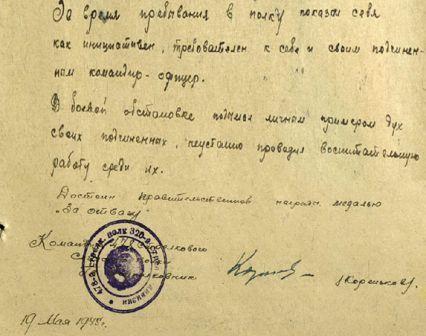 За время пребывания в полку показал себя
как инициативен, требователен к себе и своим подчинен-
ным командир-офицер.
В боевой обстановке поднимал личным примером дух
своих подчиненных, неустанно проводил воспитательную
работу среди их.
Достоин правительственной награды медалью
"За отвагу"
Командир 478 стрелкового
478-й стрелк. полк 320-й стрел
дивизии
/Кореньков/.
19 Мая 1945г.